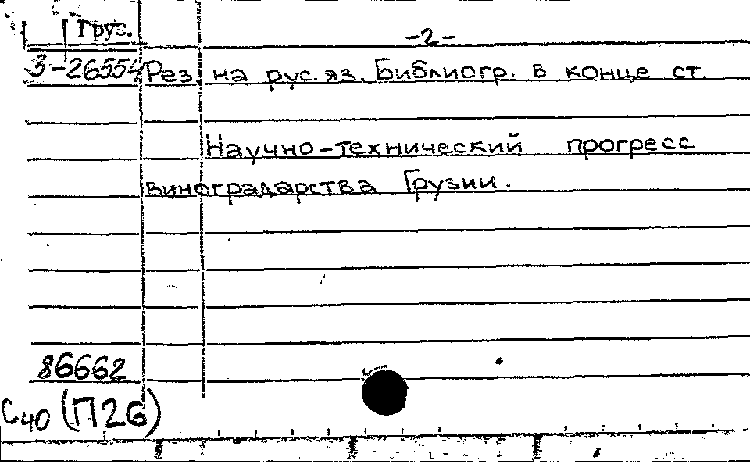 Груз.
-2-
3-26554 Рез. на рус. яз. Библиогр. в конце ст.
Научно-технический прогресс
виноградарства Грузии.
86662
С40 (П26)